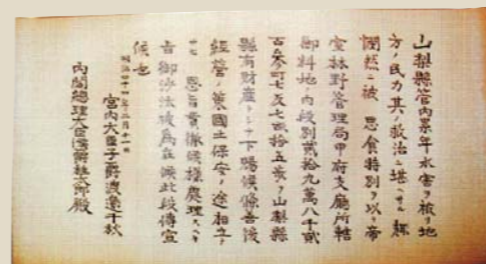 山梨縣管内累年水害ヲ被リ地
方ノ民力其ノ救治ニ堪ヘサル趣
憫然ニ被 思食特別ヲ以テ帝
室林野管理局甲府支廳所轄
御料地ノ内段別貳拾九萬八千貳
百参町七反七畝拾五歩ヲ山梨縣
縣有財産トシテ下賜候條善後
經營ノ業國土保安ノ途相立チ
サセ 恩旨貫徹候様處理スヘキ
旨御沙汰被為在候此段傳宣
候也
明治四十四年三月十一日
宮内大臣子爵渡邊千秋
内閣總理大臣侯爵桂太郎殿